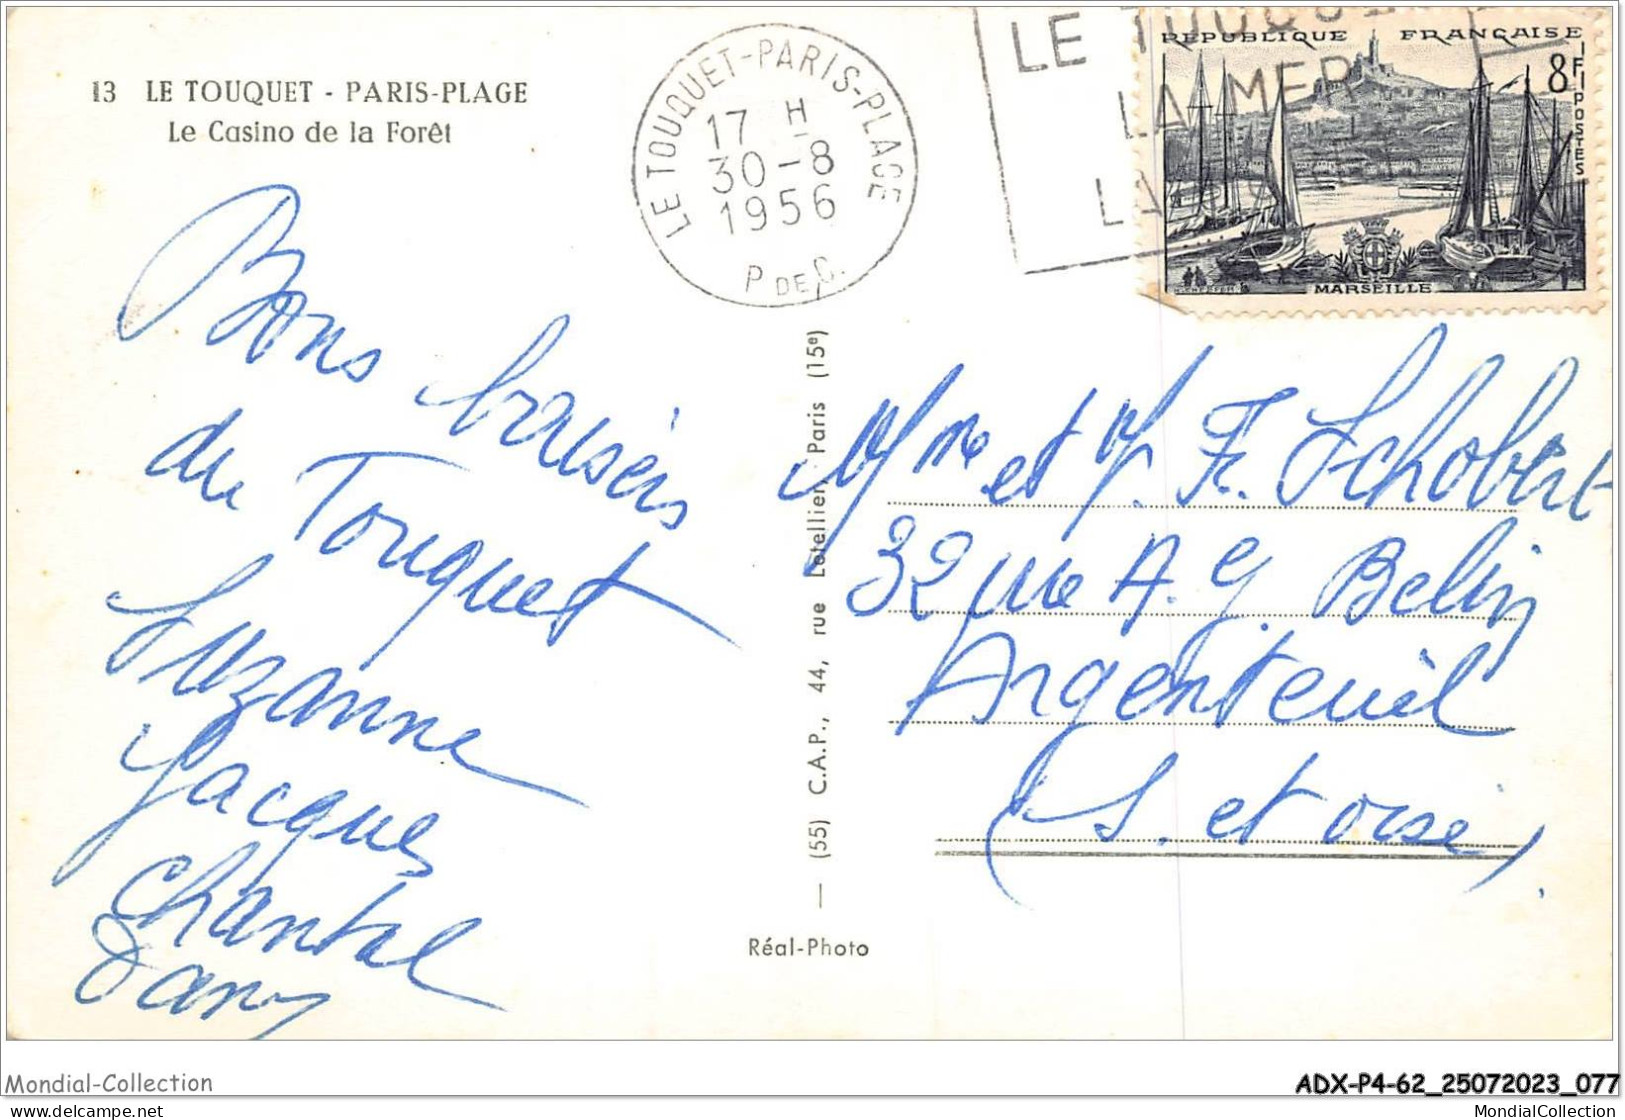 13 LE TOUQUET - PARIS-PLAGE
Le Casino de la Forêt
LE TOUQUET-PARIS-PLAGE
17 H
30-8
1956
P DE C.
LE TOUQUET
LA MER
LA
REPUBLIQUE FRANÇAISE
8F
POSTES
MARSEILLE
Bons baisers
du Touquet
Suzanne
Jacques
Chantal
Dany
Mme et M. F. Schobert
32 rue A. G. Belin
Argenteuil
(S. et oise)
(55) C.A.P., 44, rue Letellier, Paris (15e)
Réal-Photo
Mondial-Collection
ADX-P4-62_25072023_077
delcampe.net
MondialCollection